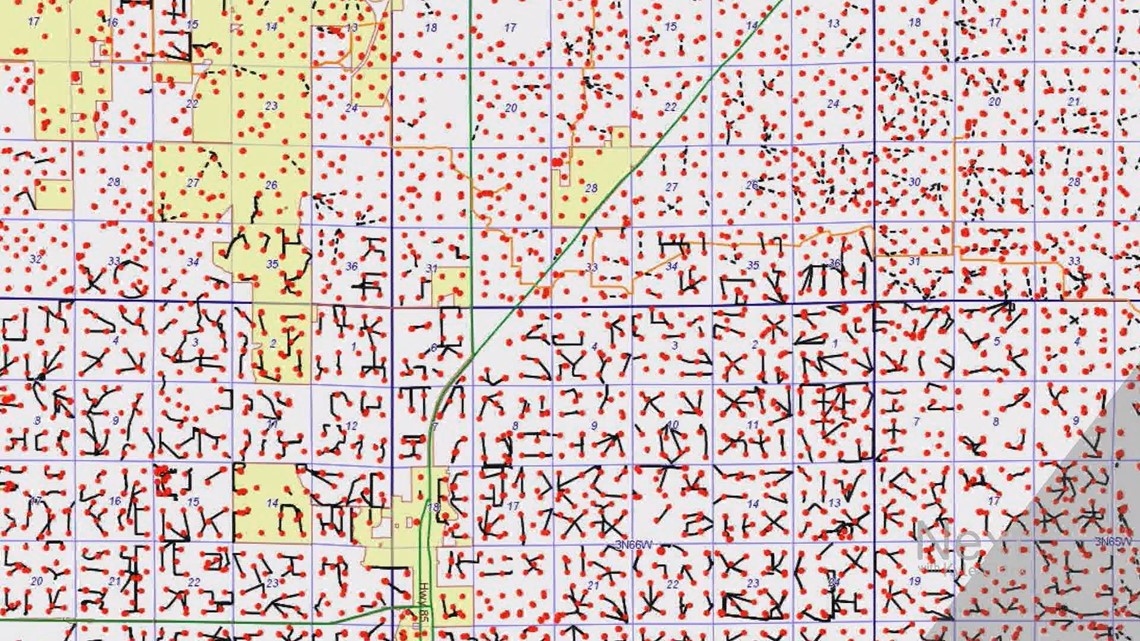 17 16 15 14 13 18 17 15 14 13 18 17
22 23 24 20 22 24 20 21
28 27 26 28 27 26 30 28
32 33 34 35 36 31 33 34 35 36 31 33
4 3 2 1 6 4 3 2 1 5 4
8 9 11 12 7 8 9 10 11 7 8 9
17 16 15 14 18 17 14 13 17
3N66W 3N65W
20 21 22 23 21 22 23 24 19
Hwy 85
Nex